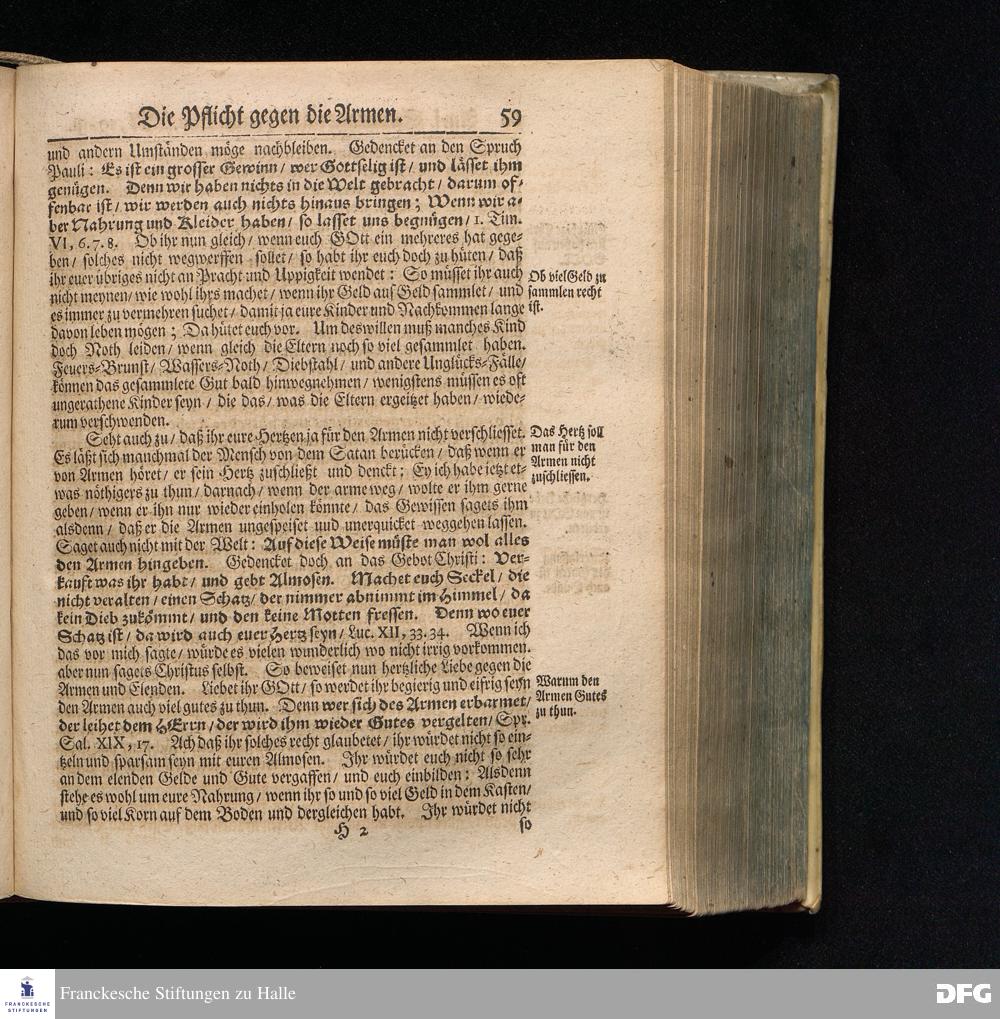 Die Pflicht gegen die Armen. 59
und andern Umständen möge nachbleiben. Gedencket an den Spruch
Pauli: Es ist ein grosser Gewinn/ wer Gottselig ist/ und lässet ihm
genügen. Denn wir haben nichts in die Welt gebracht/ darum of-
fenbar ist/ wir werden auch nichts hinaus bringen; Wenn wir a-
ber Nahrung und Kleider haben/ so lasset uns begnügen/ 1. Tim.
VI, 6. 7. 8. Ob ihr nun gleich/ wenn euch GOtt ein mehreres hat gege-
ben/ solches nicht wegwerffen sollet/ so habt ihr euch doch zu hüten/ daß
ihr euer übriges nicht an Pracht und Uppigkeit wendet: So müsset ihr auch
nicht meynen/ wie wohl ihrs machet/ wenn ihr Geld auf Geld sammlet/ und
es immer zu vermehren suchet/ damit ja eure Kinder und Nachkommen lange
davon leben mögen; Da hütet euch vor. Um deswillen muß manches Kind
doch Noth leiden/ wenn gleich die Eltern noch so viel gesammlet haben.
Feuers-Brunst/ Wassers-Noth/ Diebstahl/ und andere Unglücks-Fälle/
können das gesammlete Gut bald hinwegnehmen/ wenigstens müssen es oft
ungerathene Kinder seyn/ die das/ was die Eltern ergeitzet haben/ wiede-
rum verschwenden.
Ob viel Geld zu
sammlen recht
ist.
Seht auch zu/ daß ihr eure Hertzen ja für den Armen nicht verschliesset.
Es läßt sich manchmal der Mensch von dem Satan berücken/ daß wenn er
von Armen höret/ er sein Hertz zuschließt und denckt: Ey ich habe jetzt et-
was nöthigers zu thun/ darnach/ wenn der arme weg/ wolte er ihm gerne
geben/ wenn er ihn nur wieder einholen könnte/ das Gewissen sagets ihm
alsdenn/ daß er die Armen ungespeiset uud unerquicket weggehen lassen.
Saget auch nicht mit der Welt: Auf diese Weise müste man wol alles
den Armen hingeben. Gedencket doch an das Gebot Christi: Ver-
kauft was ihr habt/ und gebt Almosen. Machet euch Seckel/ die
nicht veralten/ einen Schatz/ der nimmer abnimmt im Himmel/ da
kein Dieb zukömmt/ und den keine Motten fressen. Denn wo euer
Schatz ist/ da wird auch euer Hertz seyn/ Luc. XII, 33. 34. Wenn ich
das vor mich sagte/ würde es vielen wunderlich wo nicht irrig vorkommen.
aber nun sagets Christus selbst. So beweiset nun hertzliche Liebe gegen die
Armen und Elenden. Liebet ihr GOtt/ so werdet ihr begierig und eifrig seyn
den Armen auch viel gutes zu thun. Denn wer sich des Armen erbarmet/
der leihet dem HErrn/ der wird ihm wieder Gutes vergelten/ Spr.
Sal. XIX, 17. Ach daß ihr solches recht glaubetet/ ihr würdet nicht so ein-
tzeln und sparsam seyn mit euren Almosen. Ihr würdet euch nicht so sehr
an dem elenden Gelde und Gute vergaffen/ und euch einbilden: Alsdenn
stehe es wohl um eure Nahrung/ wenn ihr so und so viel Geld in dem Kasten/
und so viel Korn auf dem Boden und dergleichen habt. Ihr würdet nicht
Das Hertz soll
man für den
Armen nicht
zuschliessen.
Warum den
Armen Gutes
zu thun.
H 2 so
FRANCKESCHE
STIFTUNGEN
Franckesche Stiftungen zu Halle
DFG